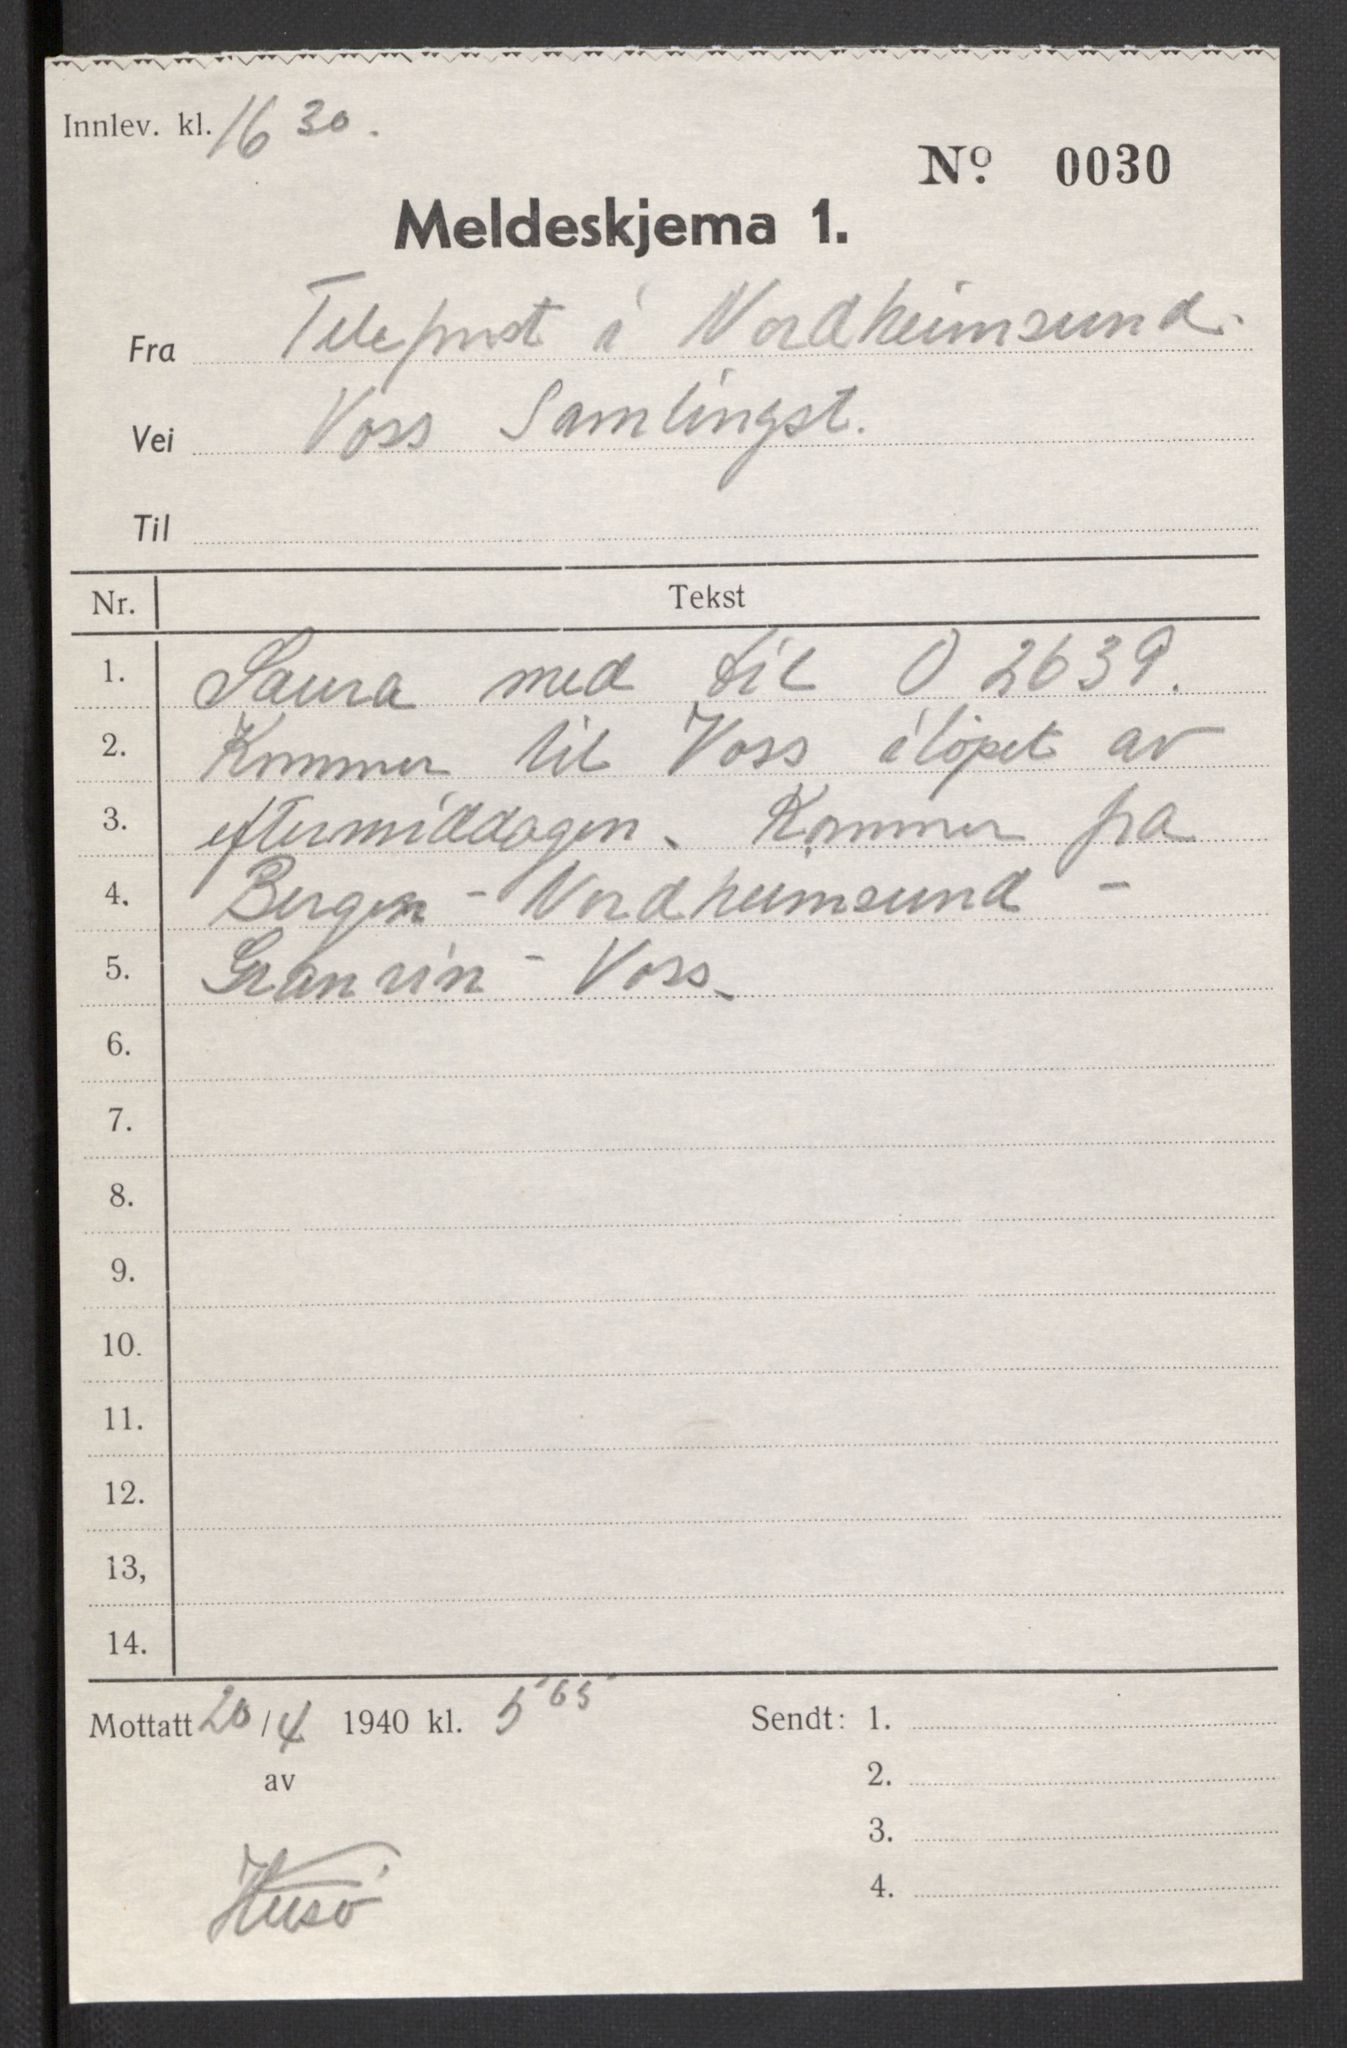 Innlev. kl. 16 30.
Nº 0030
Meldeskjema 1.
Fra Telepost i Nordheimsund.
Vei Voss Samlingst.
Til
Nr. Tekst
1. Saura med bil O 2639.
2. Kommer til Voss iløpet av
3. eftermiddagen. Kommer fra
4. Bergen - Nordheimsund -
5. Granvin - Voss.
6.
7.
8.
9.
10.
11.
12.
13,
14.
Mottatt 20/4 1940 kl. 5 05 Sendt: 1.
av 2.
3.
4.
Husø